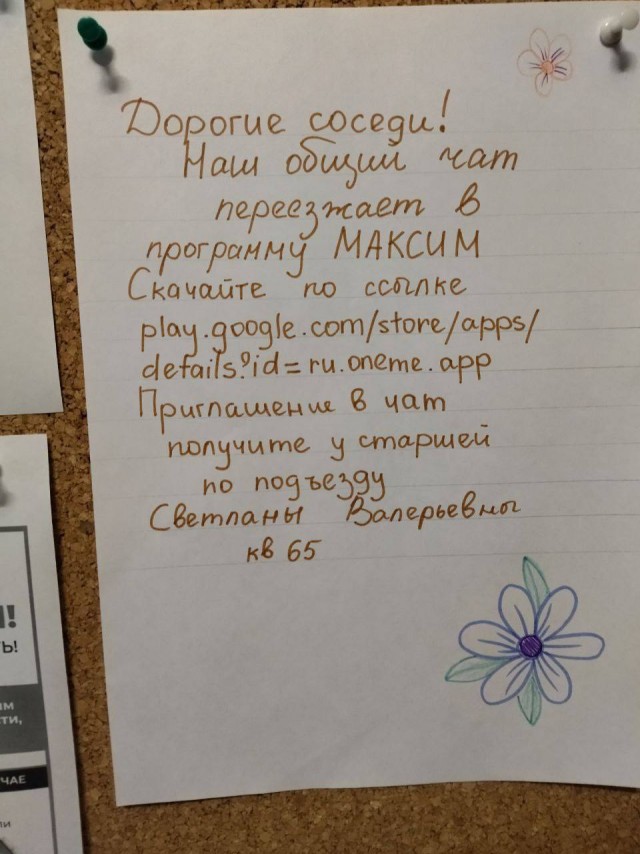 Дорогие соседи!
Наш общий чат
переезжает в
программу МАКСИМ
Скачайте по ссылке
play.google.com/store/apps/
details?id=ru.oneme.app
Приглашение в чат
получите у старшей
по подъезду
Светланы Валерьевны
кв 65
Ь!
СТИ,
ЧАЕ